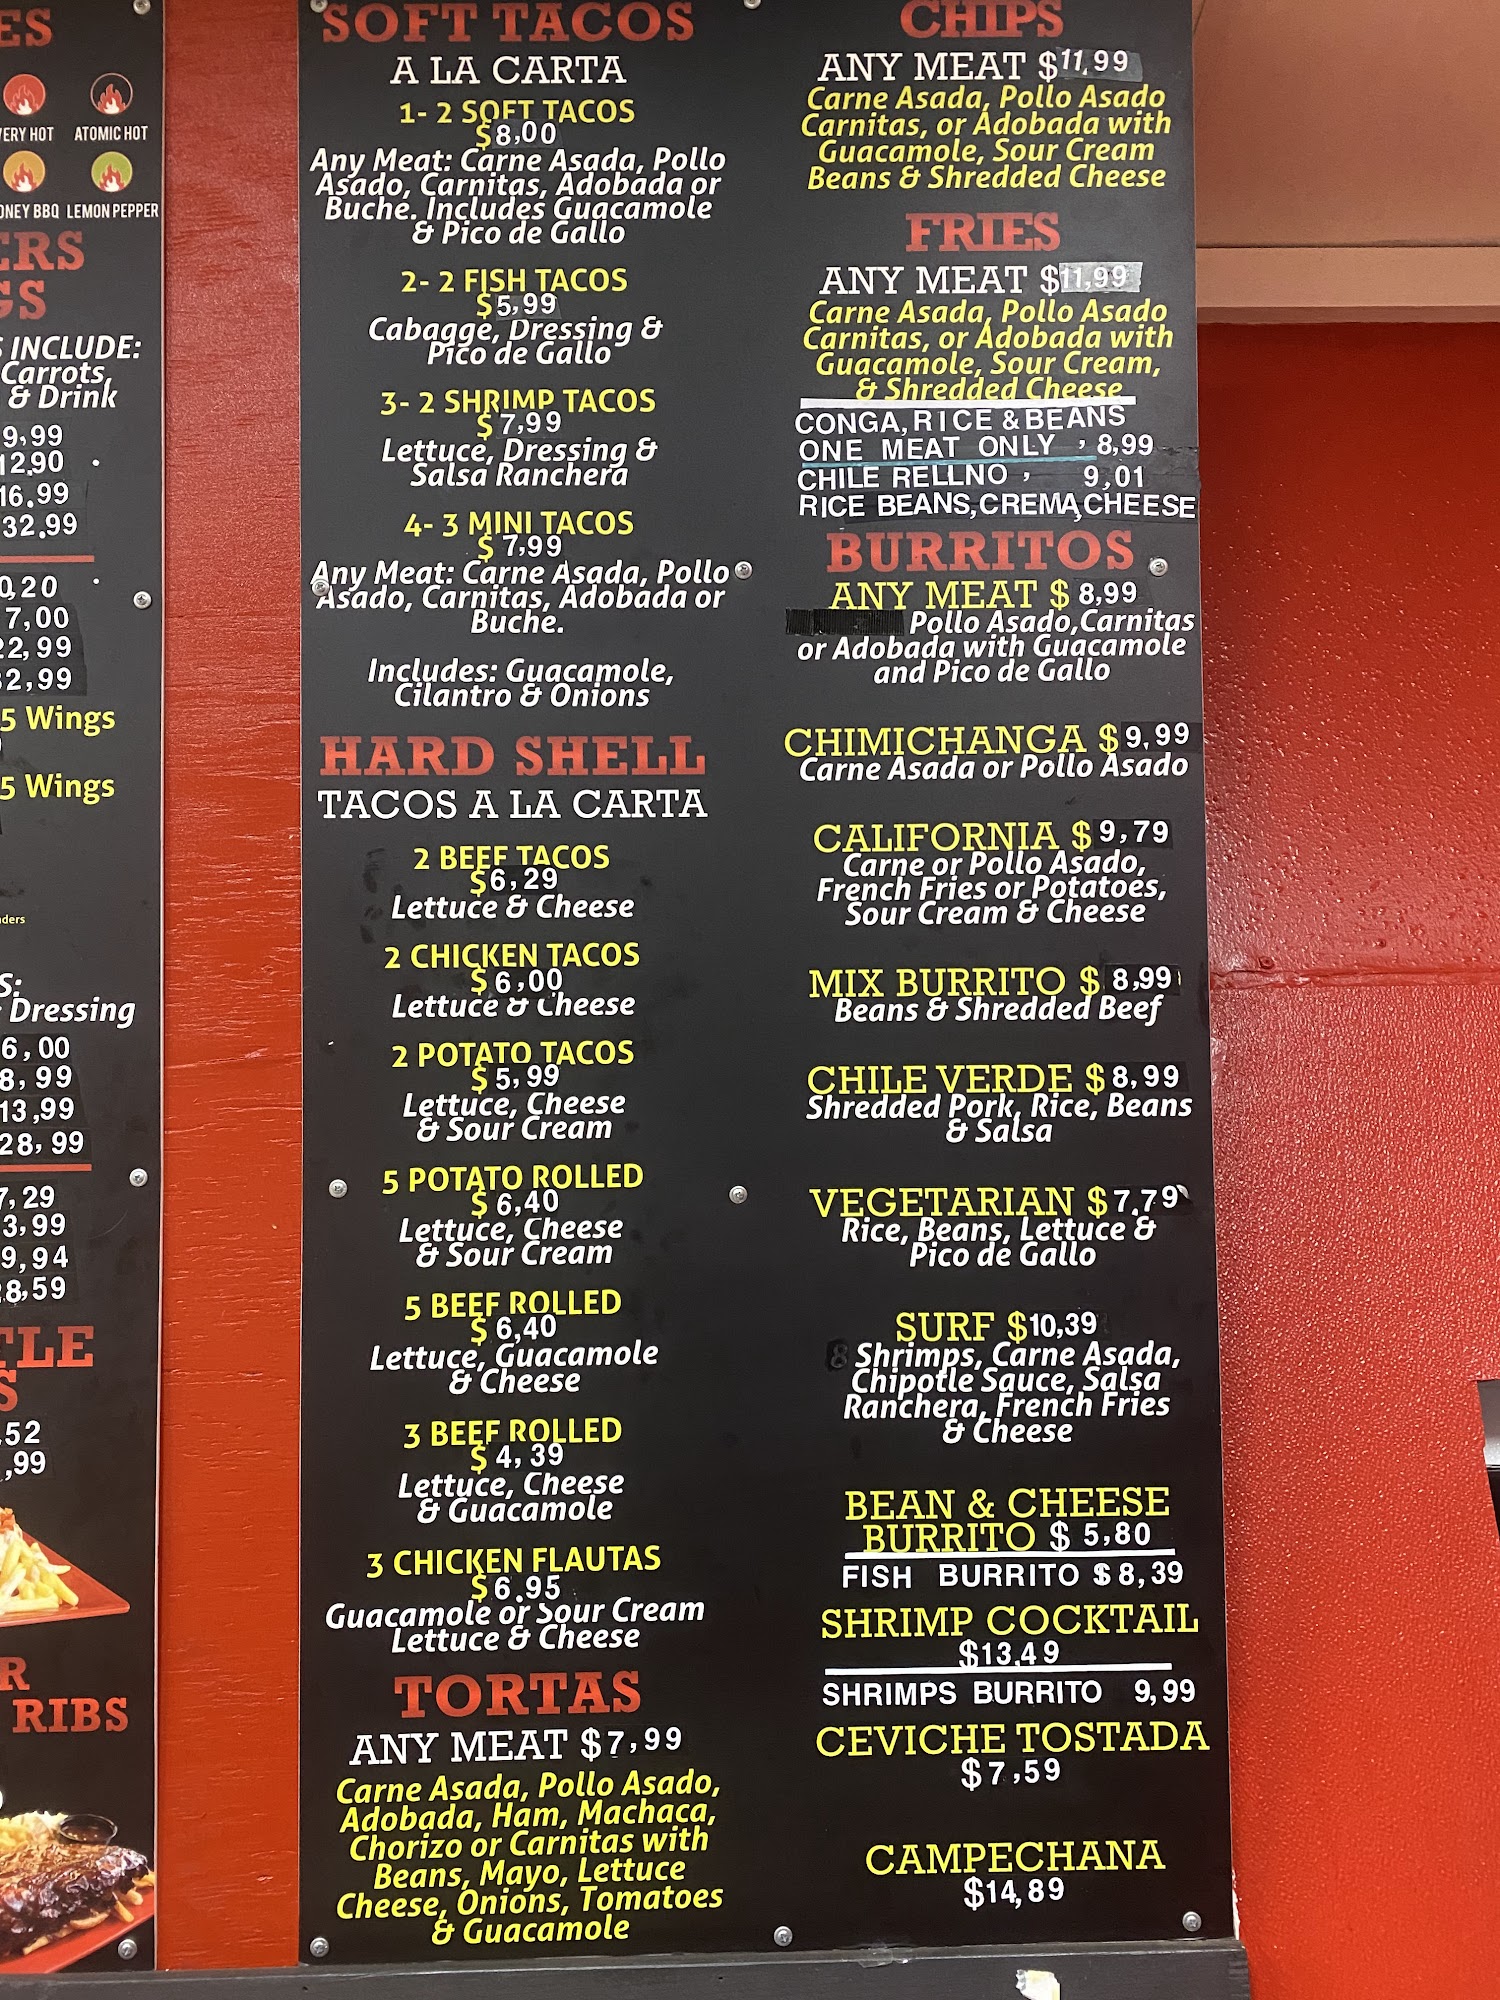 ES
VERY HOT
ATOMIC HOT
LEMON PEPPER
INCLUDE:
Carrots,
& Drink
9,99
12,90
16,99
32,99
0,20
7,00
22,99
32,99
5 Wings
5 Wings
Dressing
6,00
8,99
13,99
28,99
7,29
3,99
9,94
28,59
RIBS
SOFT TACOS
A LA CARTA
1- 2 SOFT TACOS
$8,00
Any Meat: Carne Asada, Pollo
Asado, Carnitas, Adobada or
Buche. Includes Guacamole
& Pico de Gallo
2- 2 FISH TACOS
$5,99
Cabagge, Dressing &
Pico de Gallo
3- 2 SHRIMP TACOS
$7,99
Lettuce, Dressing &
Salsa Ranchera
4- 3 MINI TACOS
$7,99
Any Meat: Carne Asada, Pollo
Asado, Carnitas, Adobada or
Buche.
Includes: Guacamole,
Cilantro & Onions
HARD SHELL
TACOS A LA CARTA
2 BEEF TACOS
$6,29
Lettuce & Cheese
2 CHICKEN TACOS
$6,00
Lettuce & Cheese
2 POTATO TACOS
$5,99
Lettuce, Cheese
& Sour Cream
5 POTATO ROLLED
$6,40
Lettuce, Cheese
& Sour Cream
5 BEEF ROLLED
$6,40
Lettuce, Guacamole
& Cheese
3 BEEF ROLLED
$4,39
Lettuce, Cheese
& Guacamole
3 CHICKEN FLAUTAS
$6.95
Guacamole or Sour Cream
Lettuce & Cheese
TORTAS
ANY MEAT $7,99
Carne Asada, Pollo Asado,
Adobada, Ham, Machaca,
Chorizo or Carnitas with
Beans, Mayo, Lettuce
Cheese, Onions, Tomatoes
& Guacamole
CHIPS
ANY MEAT $11,99
Carne Asada, Pollo Asado
Carnitas, or Adobada with
Guacamole, Sour Cream
Beans & Shredded Cheese
FRIES
ANY MEAT $11,99
Carne Asada, Pollo Asado
Carnitas, or Adobada with
Guacamole, Sour Cream,
& Shredded Cheese
CONGA, RICE & BEANS
ONE MEAT ONLY , 8,99
CHILE RELLNO , 9,01
RICE BEANS,CREMA,CHEESE
BURRITOS
ANY MEAT $8,99
Pollo Asado,Carnitas
or Adobada with Guacamole
and Pico de Gallo
CHIMICHANGA $9,99
Carne Asada or Pollo Asado
CALIFORNIA $9,79
Carne or Pollo Asado,
French Fries or Potatoes,
Sour Cream & Cheese
MIX BURRITO $8,99
Beans & Shredded Beef
CHILE VERDE $8,99
Shredded Pork, Rice, Beans
& Salsa
VEGETARIAN $7,79
Rice, Beans, Lettuce &
Pico de Gallo
SURF $10,39
8 Shrimps, Carne Asada,
Chipotle Sauce, Salsa
Ranchera, French Fries
& Cheese
BEAN & CHEESE
BURRITO $5,80
FISH BURRITO $8,39
SHRIMP COCKTAIL
$13,49
SHRIMPS BURRITO 9,99
CEVICHE TOSTADA
$7,59
CAMPECHANA
$14,89